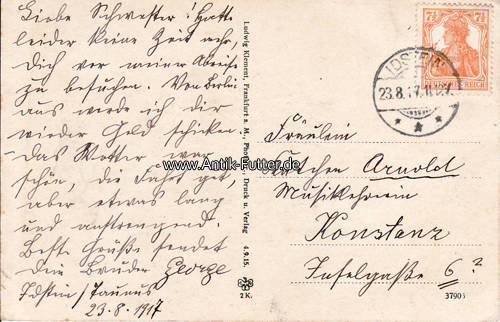 Liebe Schwester! Hatte
leider keine Zeit mehr,
Dich vor meiner Abreise
zu besuchen. Von Berlin
aus werde ich dir
wieder Geld schicken.
Das Wetter war
schön, die Fahrt gut,
aber etwas lang
und anstrengend.
Beste Grüße sendet
Dein Bruder George
Idstein/Taunus
23.8.1917
Ludwig Klement, Frankfurt a. M., Druck u. Verlag 4.9.15.
2 K.
7½ 7½
IDSTEIN
23.8.17.
Fräulein
Arnold
Musiklehrerin
Konstanz
Inselgaße 6?
37905
www.Antik-Futter.de